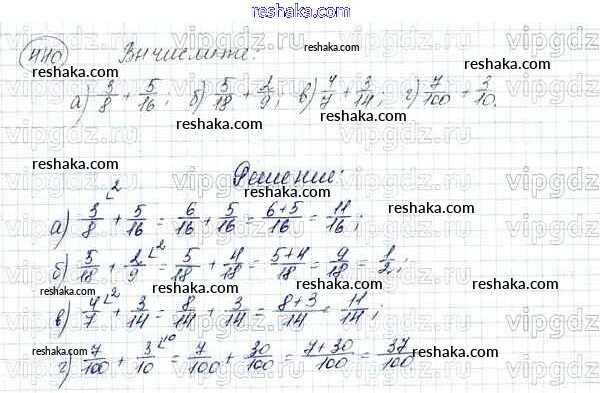 reshaka.com
440 Вычислите:
а) 3/8 + 5/16; б) 5/18 + 2/9; в) 4/7 + 3/14; г) 7/100 + 3/10.
Решение:
а) 3/8 ^2 + 5/16 = 6/16 + 5/16 = (6+5)/16 = 11/16;
б) 5/18 + 2/9 ^2 = 5/18 + 4/18 = (5+4)/18 = 9/18 = 1/2;
в) 4/7 ^2 + 3/14 = 8/14 + 3/14 = (8+3)/14 = 11/14;
г) 7/100 + 3/10 ^10 = 7/100 + 30/100 = (7+30)/100 = 37/100.
reshaka.com